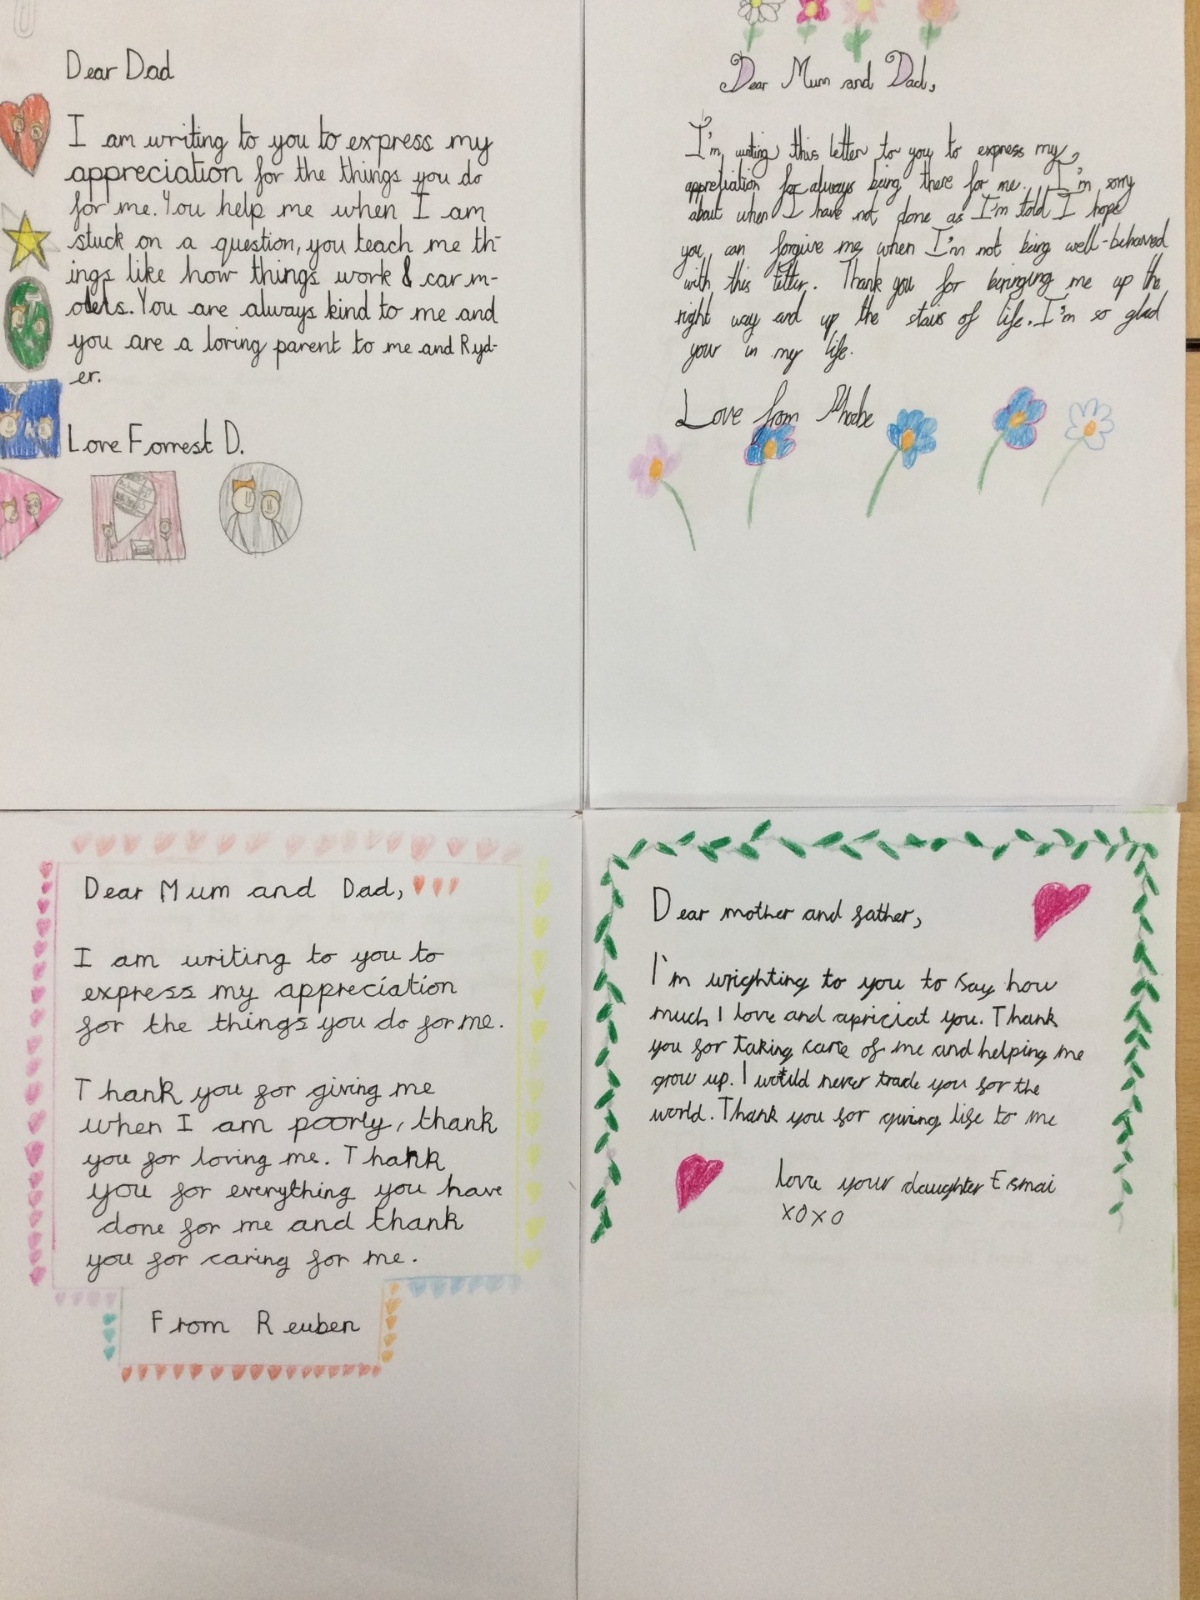 Dear Dad
I am writing to you to express my
appreciation for the things you do
for me. You help me when I am
stuck on a question, you teach me th-
ings like how things work & car m-
odels. You are always kind to me and
you are a loving parent to me and Ryd-
er.
Love Forrest D.
Dear Mum and Dad,
I'm writing this letter to you to express my
appreciation for always being there for me. I'm sorry
about when I have not done as I'm told I hope
you can forgive me when I'm not being well-behaved
with this letter. Thank you for beringing me up the
right way and up the stairs of life. I'm so glad
your in my life.
Love from Phoebe
Dear Mum and Dad,
I am writing to you to
express my appreciation
for the things you do for me.
Thank you for giving me
when I am poorly, thank
you for loving me. Thank
you for everything you have
done for me and thank
you for caring for me.
From Reuben
Dear mother and father,
I'm wrighting to you to say how
much I love and apriciat you. Thank
you for taking care of me and helping me
grow up. I would never trade you for the
world. Thank you for giving life to me
love your daughter Esmai
xoxo